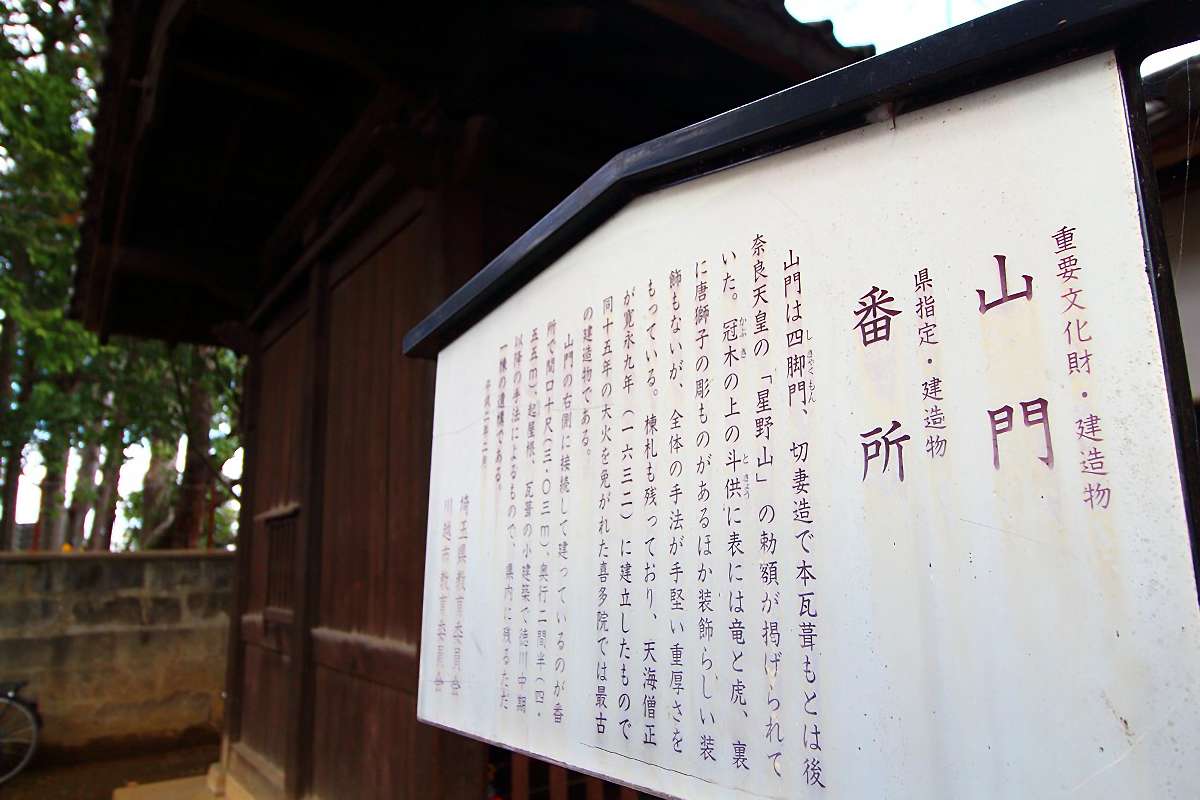 重要文化財・建造物
山門
県指定・建造物
番所
山門は四脚門、切妻造で本瓦葺もとは後
しきゃくもん
奈良天皇の「星野山」の勅額が掲げられて
いた。冠木の上の斗供に表には竜と虎、裏
かぶき
ときょう
に唐獅子の彫ものがあるほか装飾らしい装
飾もないが、全体の手法が手堅い重厚さを
もっている。棟札も残っており、天海僧正
が寛永九年（一六三二）に建立したもので
同十五年の大火を免がれた喜多院では最古
の建造物である。
山門の右側に接続して建っているのが番
所で間口十尺（三・〇三m）、奥行二間半（四・
五五m）、起屋根、瓦葺の小建築で徳川中期
以降の手法によるもので、県内に残るただ
一棟の遺構である。
埼玉県教育委員会
川越市教育委員会